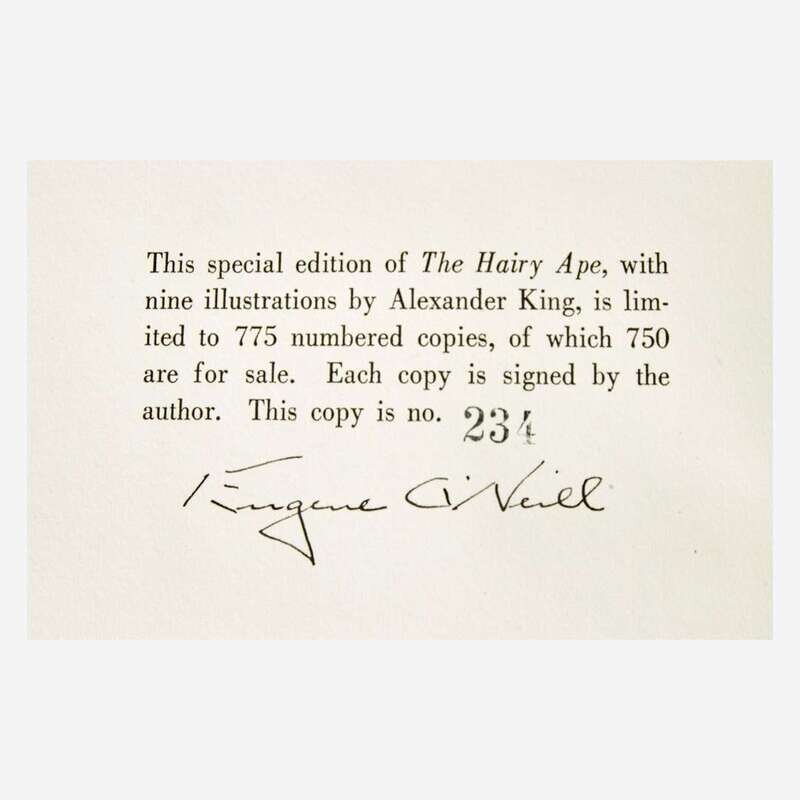 This special edition of The Hairy Ape, with
nine illustrations by Alexander King, is lim-
ited to 775 numbered copies, of which 750
are for sale. Each copy is signed by the
author. This copy is no. 234
Eugene O'Neill